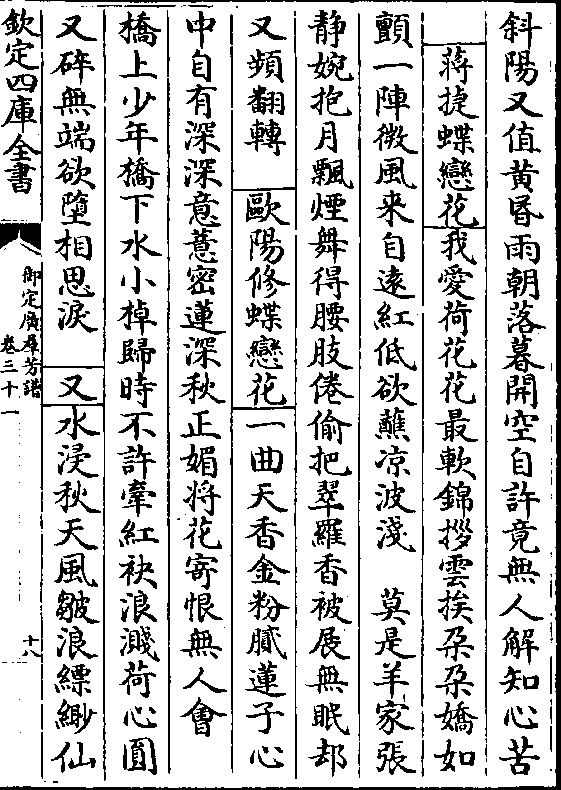 斜陽又值黄昏雨朝落暮開空自許竟無人解知心苦
蔣捷蝶戀花我愛荷花花最軟錦拶雲挨朶朶嬌如
顫一陣微風来自遠紅低欲蘸凉波淺　莫是羊家張
静婉抱月飄煙舞得腰肢倦偷把翠羅香被展無眠却
又頻翻轉　歐陽修蝶戀花一曲天香金粉膩蓮子心
中自有深深意薏密蓮深秋正媚將花寄恨無人會
橋上少年橋下水小棹歸時不許牽紅袂浪濺荷心圓
又碎無端欲墮相思淚　又水浸秋天風皺浪縹緲仙
欽定四庫全書
御定廣羣芳譜
卷三十一
十八